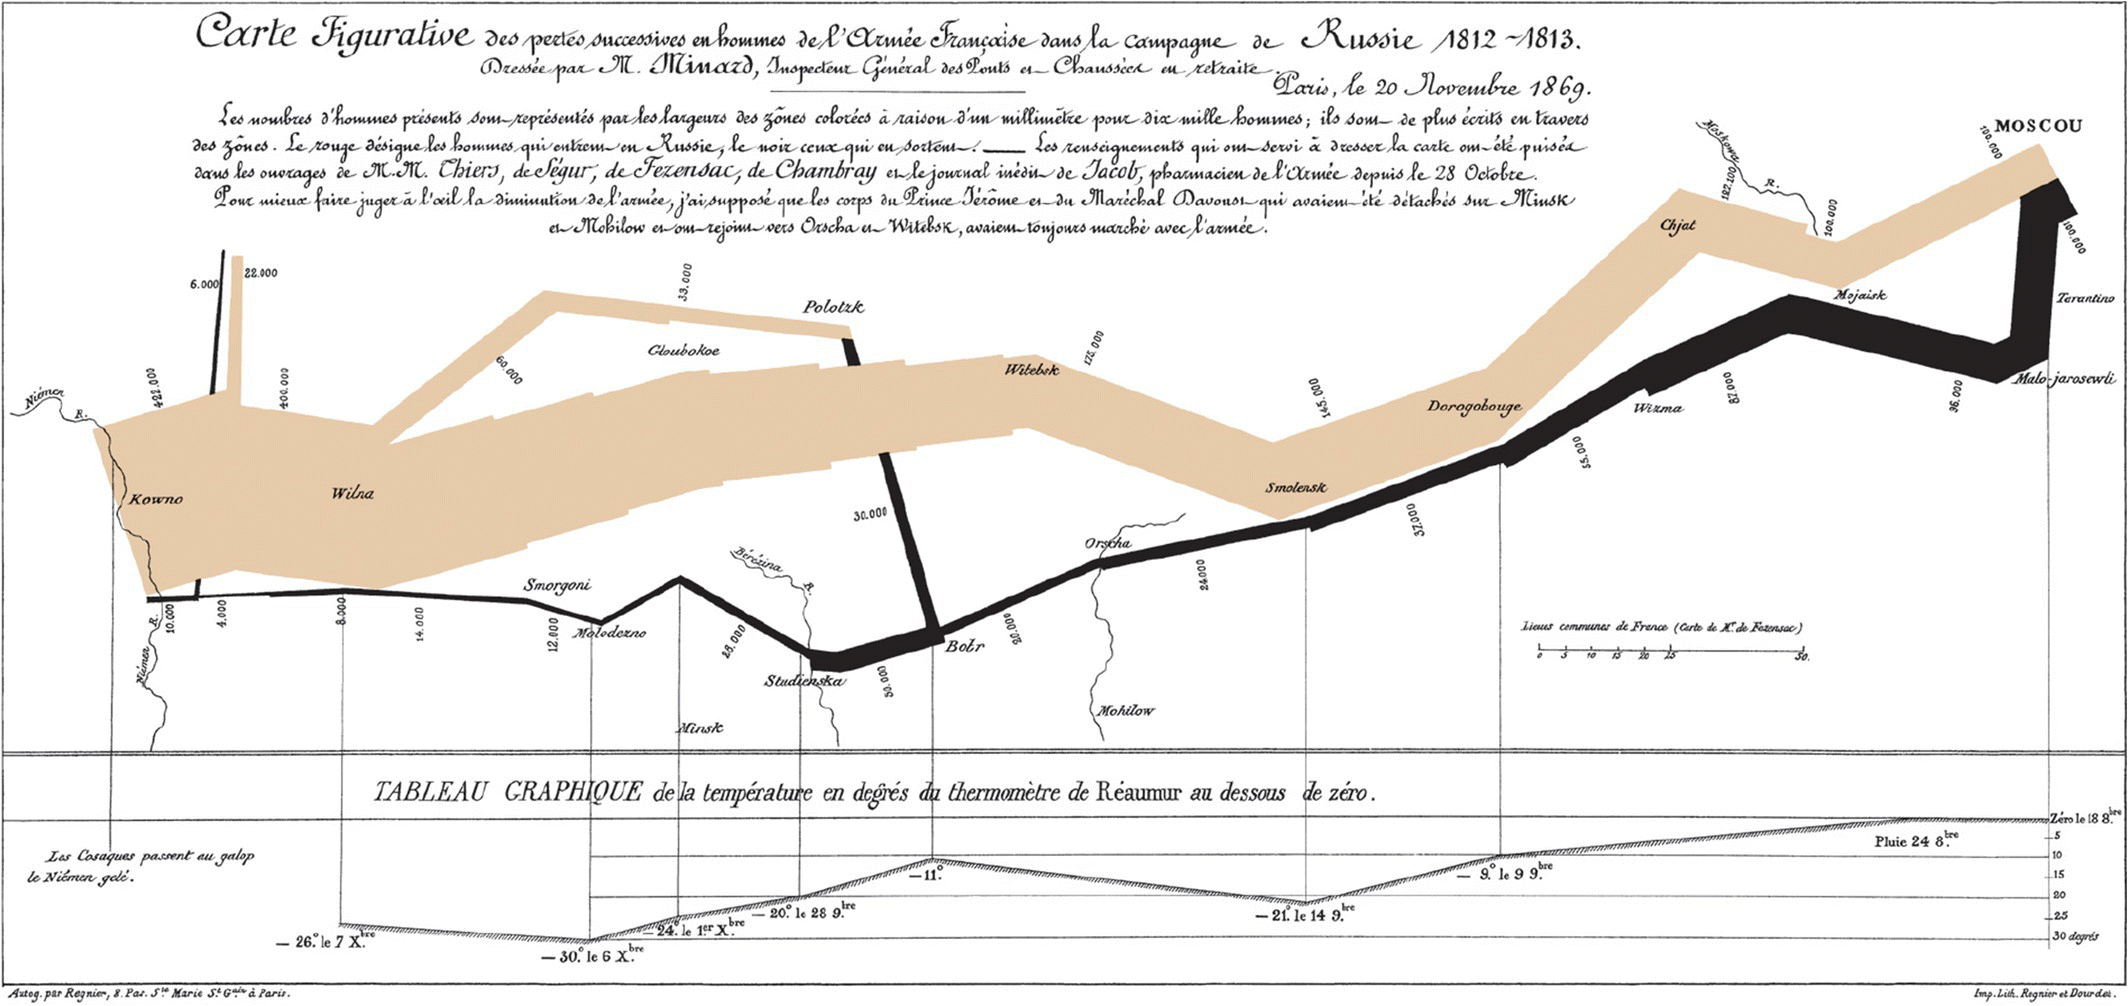 Carte Figurative des pertes successives en hommes de l'Armée Française dans la campagne de Russie 1812~1813.
Dressée par M. Minard, Inspecteur Général des Ponts et Chaussées en retraite.
Paris, le 20 Novembre 1869.
Les nombres d'hommes présents sont représentés par les largeurs des zônes colorées à raison d'un millimètre pour dix mille hommes; ils sont de plus écrits en travers
des zônes. Le rouge désigne les hommes qui entrent en Russie, le noir ceux qui en sortent. — Les renseignements qui ont servi à dresser la carte ont été puisés
dans les ouvrages de M.M. Thiers, de Ségur, de Fezensac, de Chambray et le journal inédit de Jacob, pharmacien de l'Armée depuis le 28 Octobre.
Pour mieux faire juger à l'œil la diminution de l'armée, j'ai supposé que les corps du Prince Jérôme et du Maréchal Davoust qui avaient été détachés sur Minsk
et Mohilow et ont rejoint vers Orscha et Witebsk, avaient toujours marché avec l'armée.
MOSCOU
100.000
Moskowa R.
122.100
100.000
Chjat
100.000
Mojaisk
Tarantino
Malo-jarosewli
22.000
6.000
33.000
Polotzk
Gloubokoe
60.000
175.000
Witebsk
422.000
400.000
Niémen R.
145.000
Dorogobouge
Wizma
87.000
96.000
55.000
Kowno
Wilna
Smolensk
37.000
30.000
Orscha
24.000
Bérézina R.
Smorgoni
10.000
4.000
8.000
14.000
12.000
Molodezno
28.000
20.000
Bobr
Studienska
50.000
Niémen R.
Minsk
Mohilow
Lieues communes de France (Carte de Mr. de Fezensac)
0 5 10 15 20 25 50.
TABLEAU GRAPHIQUE de la température en degrés du thermomètre de Réaumur au dessous de zéro.
Zéro le 18 8.bre
Pluie 24 8.bre
5
10
15
20
25
30 degrés
Les Cosaques passent au galop
le Niémen gelé.
— 11.°
— 9.° le 9 9.bre
— 20.° le 28 9.bre
— 21.° le 14 9.bre
— 24.° le 1.er X.bre
— 26.° le 7 X.bre
— 30.° le 6 X.bre
Autog. par Regnier, 8. Pas. Ste. Marie St. Gain à Paris.
Imp. Lith. Regnier et Dourdet.